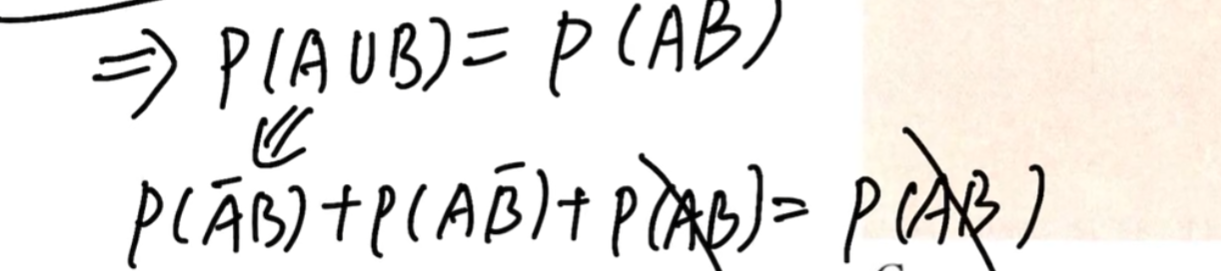 ⇒ P(A∪B) = P(AB)
⇙
P(A̅B) + P(AB̅) + P(AB) = P(AB)